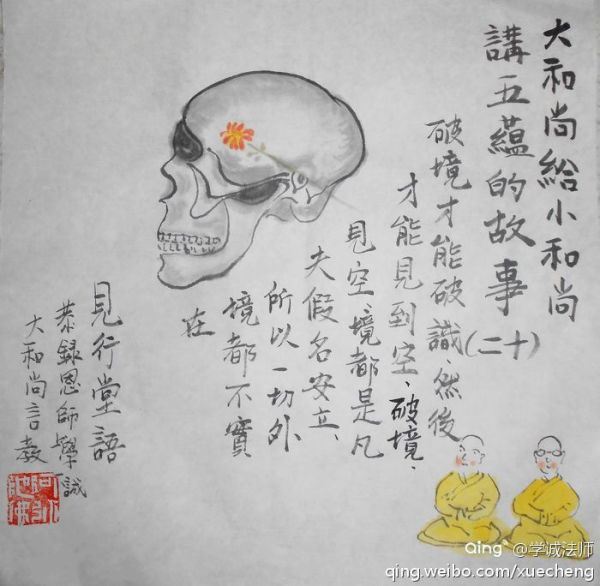 大和尚給小和尚
講五蘊的故事(二十)
破境才能破識、然後
才能見到空、破境、
見空、境都是凡
夫假名安立、
所以一切外
境都不實
在
見行堂語
恭錄恩師學誠
大和尚言教
Qing @学诚法师
qing.weibo.com/xuecheng